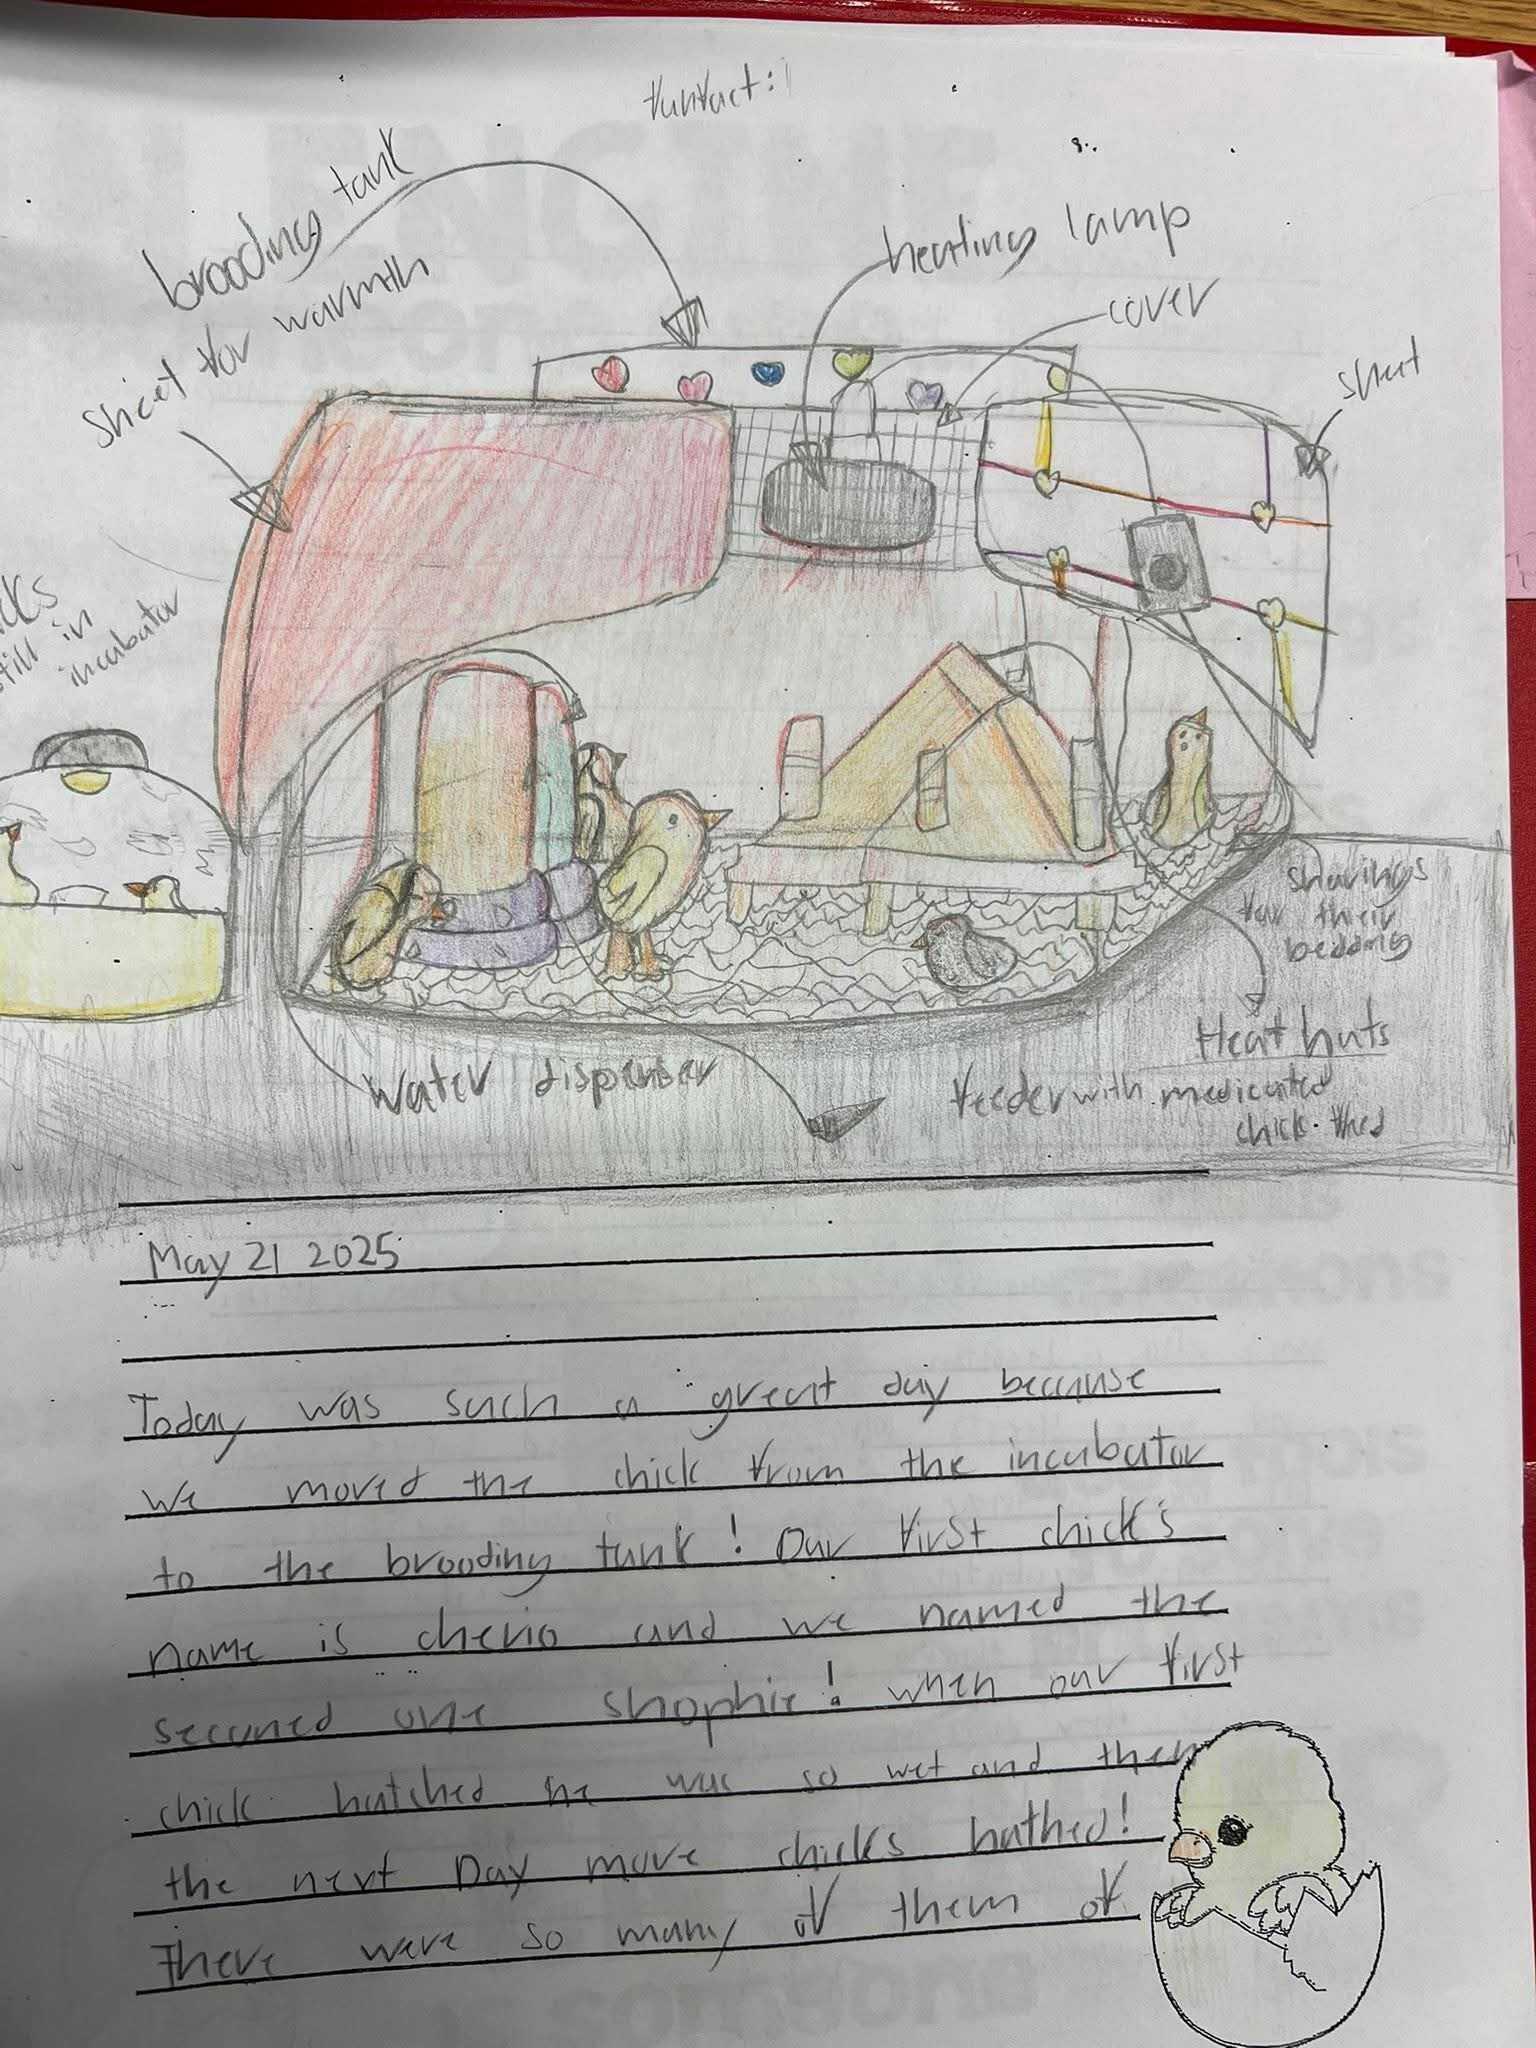 brooding tank
sheet for warmth
heating lamp
cover
still in
incubator
shavings
for their
bedding
Heat huts
water dispenser
feeder with medicated
chick
May 21 2025
Today was such a great day because
we moved the chick from the incubator
to the brooding tank! Our first chick's
name is cherio and we named the
seccuned one shophie! when our first
chick hatched he was so wet and then
the next Day more chicks hathed!
There were so many of them of